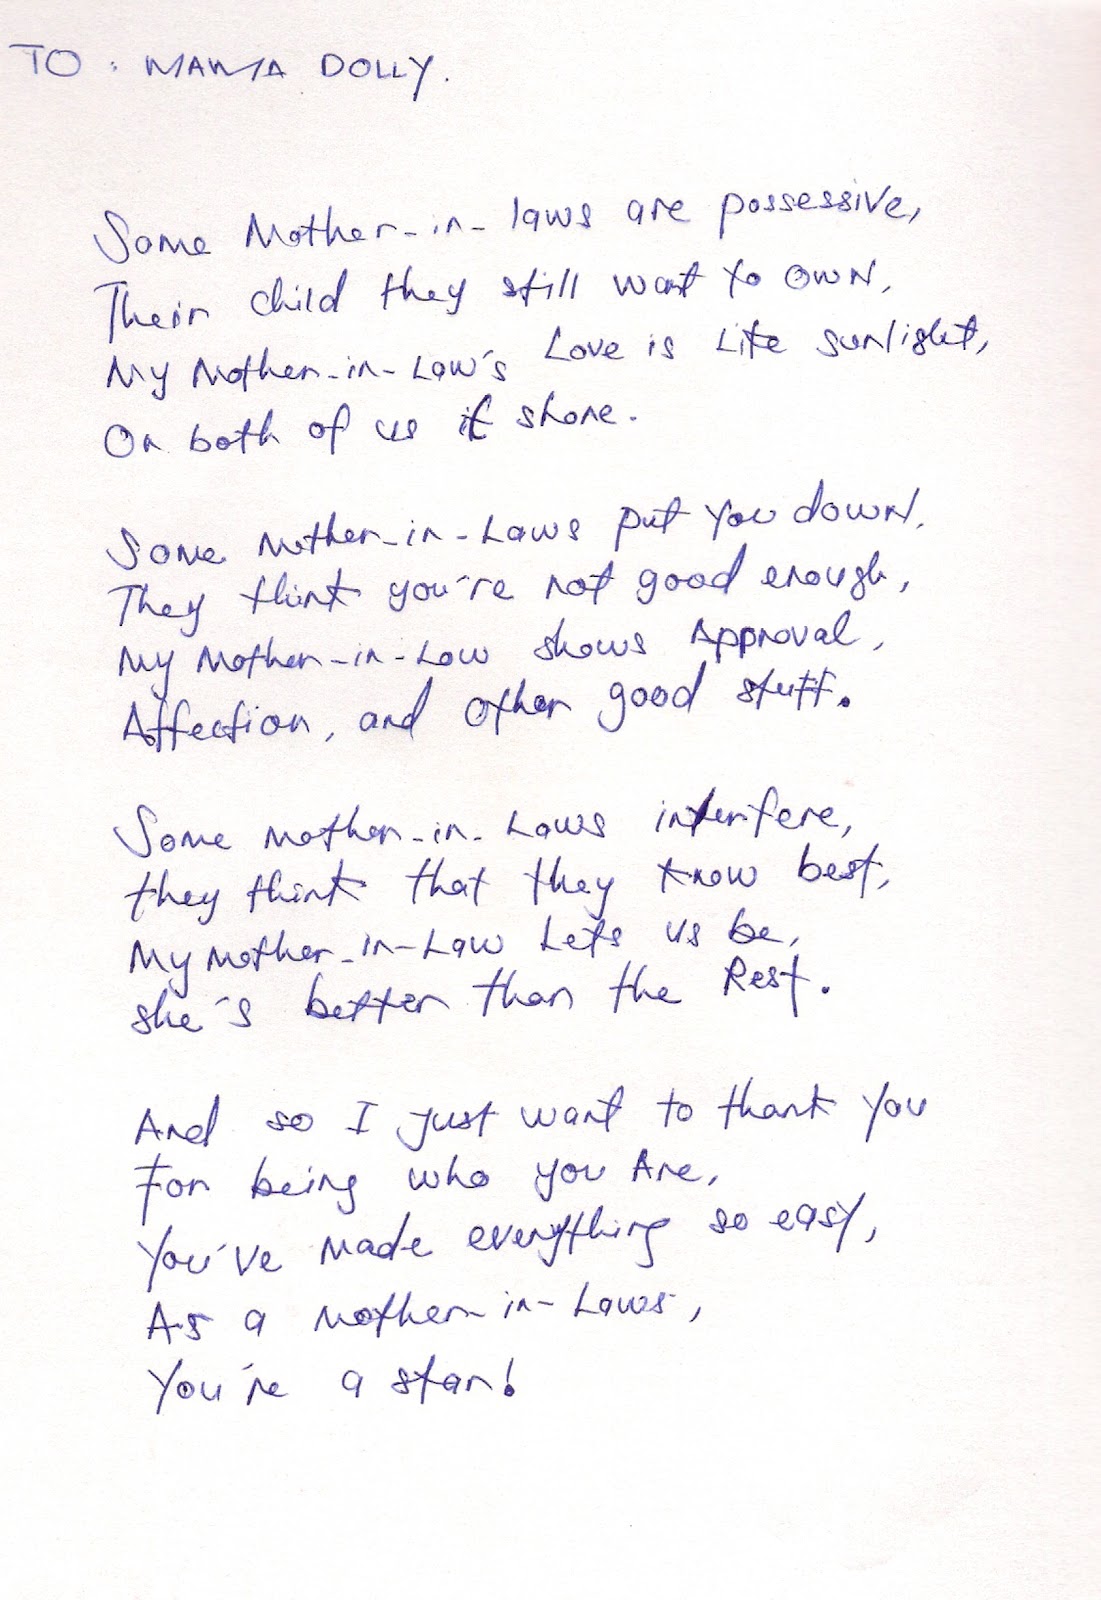 TO : MAMA DOLLY.
Some Mother-in-laws are possessive,
Their child they still want to OWN,
My Mother-in-Law's Love is Like sunlight,
On both of us it shone.
Some Mother-in-Laws put you down,
They think you're not good enough,
My Mother-in-Law shows Approval,
Affection, and other good stuff.
Some mother-in-Laws interfere,
they think that they know best,
My mother-in-Law Lets us be,
she's better than the Rest.
And so I just want to thank you
For being who you Are,
You've made everything so easy,
As a mother-in-Laws,
You're a star!